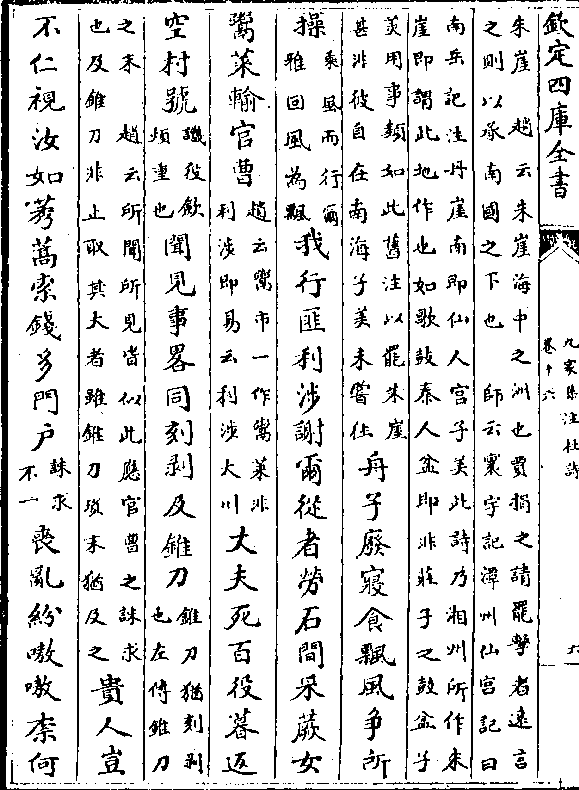 欽定四庫全書
九家集注杜詩
卷十六
朱崖　趙云朱崖海中之洲也賈捐之請罷擊者遠言
之則以承南國之下也　師云寰宇記潭州仙宮記曰
南岳記注丹崖南即仙人宮子美此詩乃湘州所作朱
崖即謂此地作也如歌鼓秦人盆即非莊子之鼓盆子
美用事類如此舊注以罷朱崖
甚非彼自在南海子美未嘗往
舟子廢寢食飄風爭所
操
乘風而行爾
雅回風為飄
我行匪利涉謝爾從者勞石間采蕨女
鬻菜輸官曹
趙云鬻市一作鬻菜非
利涉即易云利涉大川
丈夫死百役暮返
空村號
繼役飲
煩重也
聞見事畧同刻剥及錐刀
錐刀猶刻剥
也左傳錐刀
之末　趙云所聞所見皆似此應官曹之誅求
也及錐刀非止取其大者雖錐刀瑣末猶及之
貴人豈
不仁視汝如莠蒿索錢多門戶
誅求
不一
喪亂紛嗷嗷柰何